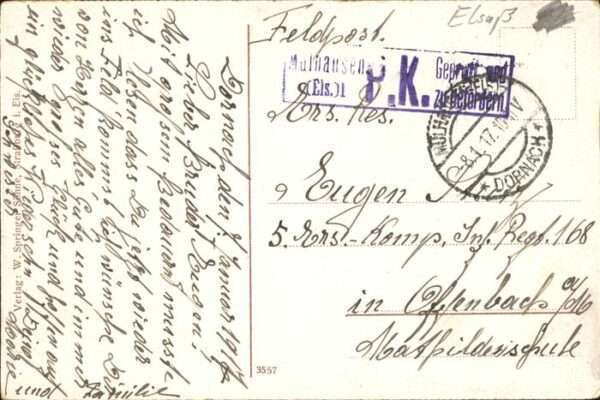 Dornach den 7. Januar 1917
Lieber Bruder Eugen!
Mit grossem Bedauern musste
ich lesen dass Du jetzt wieder
ins Feld kommst. Ich wünsche Dir
von Herzen alles Gute und immer
wieder grosses Glück und hoffen auf
ein glückliches Wiedersehn Deine
Marie
und Familie
Verlag: W. Springer Söhne, Strassburg i. Els.
3557
Elsaß
Feldpost.
Mülhausen
(Els.)1
P.K.
Geprüft und
zu befördern
MÜLHAUSEN (ELS.)
-8.1.17.10-11V
* DORNACH *
Ers. Res.
Eugen
5. Ers.-Komp. Inf. Regt. 168
in Offenbach a/M
Mathildenschule